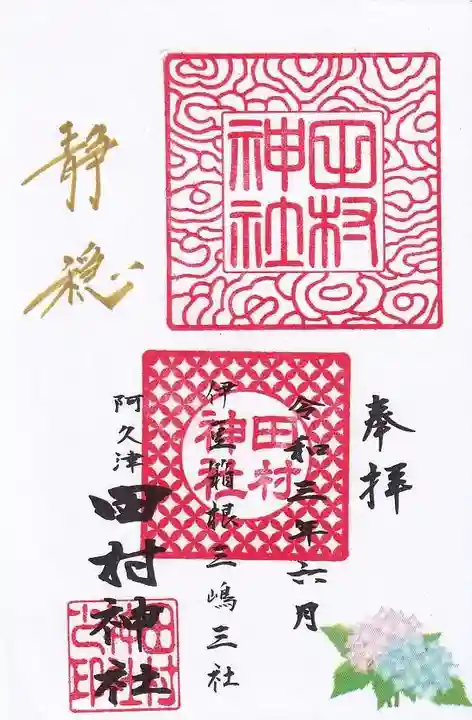 奉拝
令和三年六月
伊豆箱根三嶋三社
阿久津
田村神社
静穏
田村
神社
田村
神社
田村
神社
之印